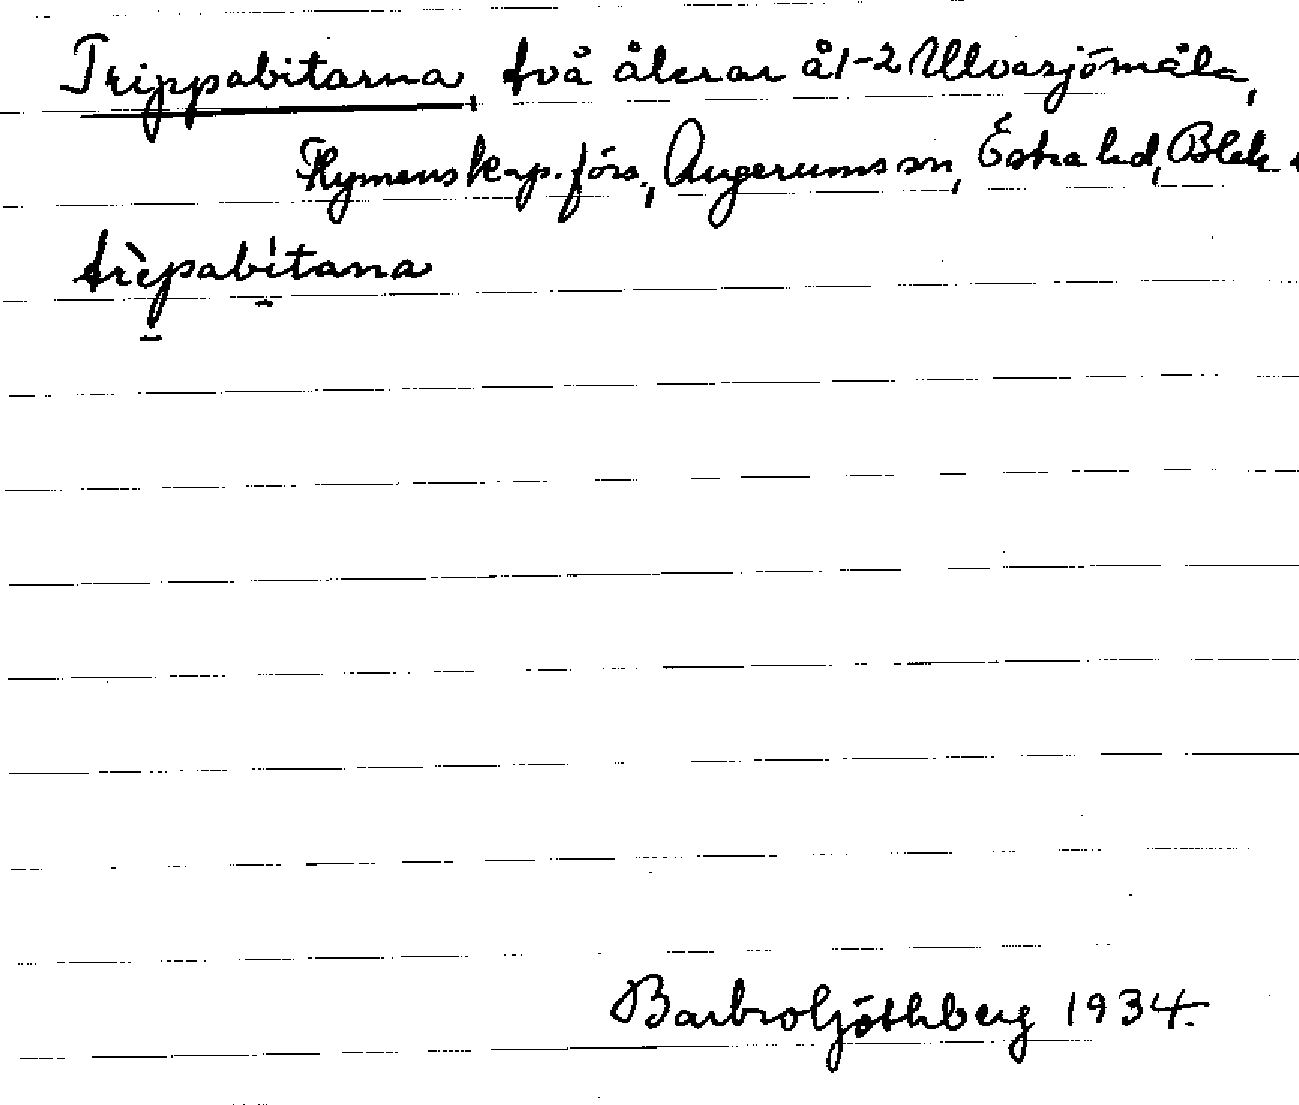 Trippabitarna, två åkrar å 1-2 Ulvasjömåla,
Flymens kap. förs., Augerums sn, Östra hd, Blek.
trìpabítana
Barbro Göthberg 1934.